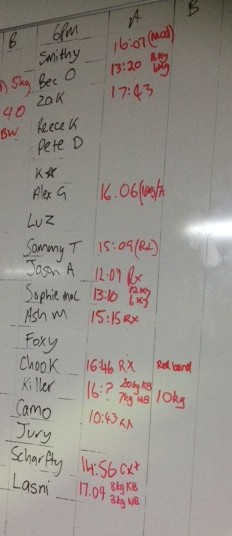 B 6pm A B
Smithy 16:07 (Med)
5kg Bec O 13:20
40 Zak 17:43
BW
Reece K
Pete D
K
Alex G 16.06
Luz
Sammy T 15:09 (Rx)
Jason A 12:09 Rx
Sophie Mac 13:10 12kg 6kg
Ash M 15:15 Rx
Foxy
Chook 16:46 Rx Red band
Killer 16:? 20kg KB 7kg WB 10kg
Camo 10:43 Rx
Jury
Scharfty 14:56 Rx+
Lasni 17.04 8kg KB 3kg WB